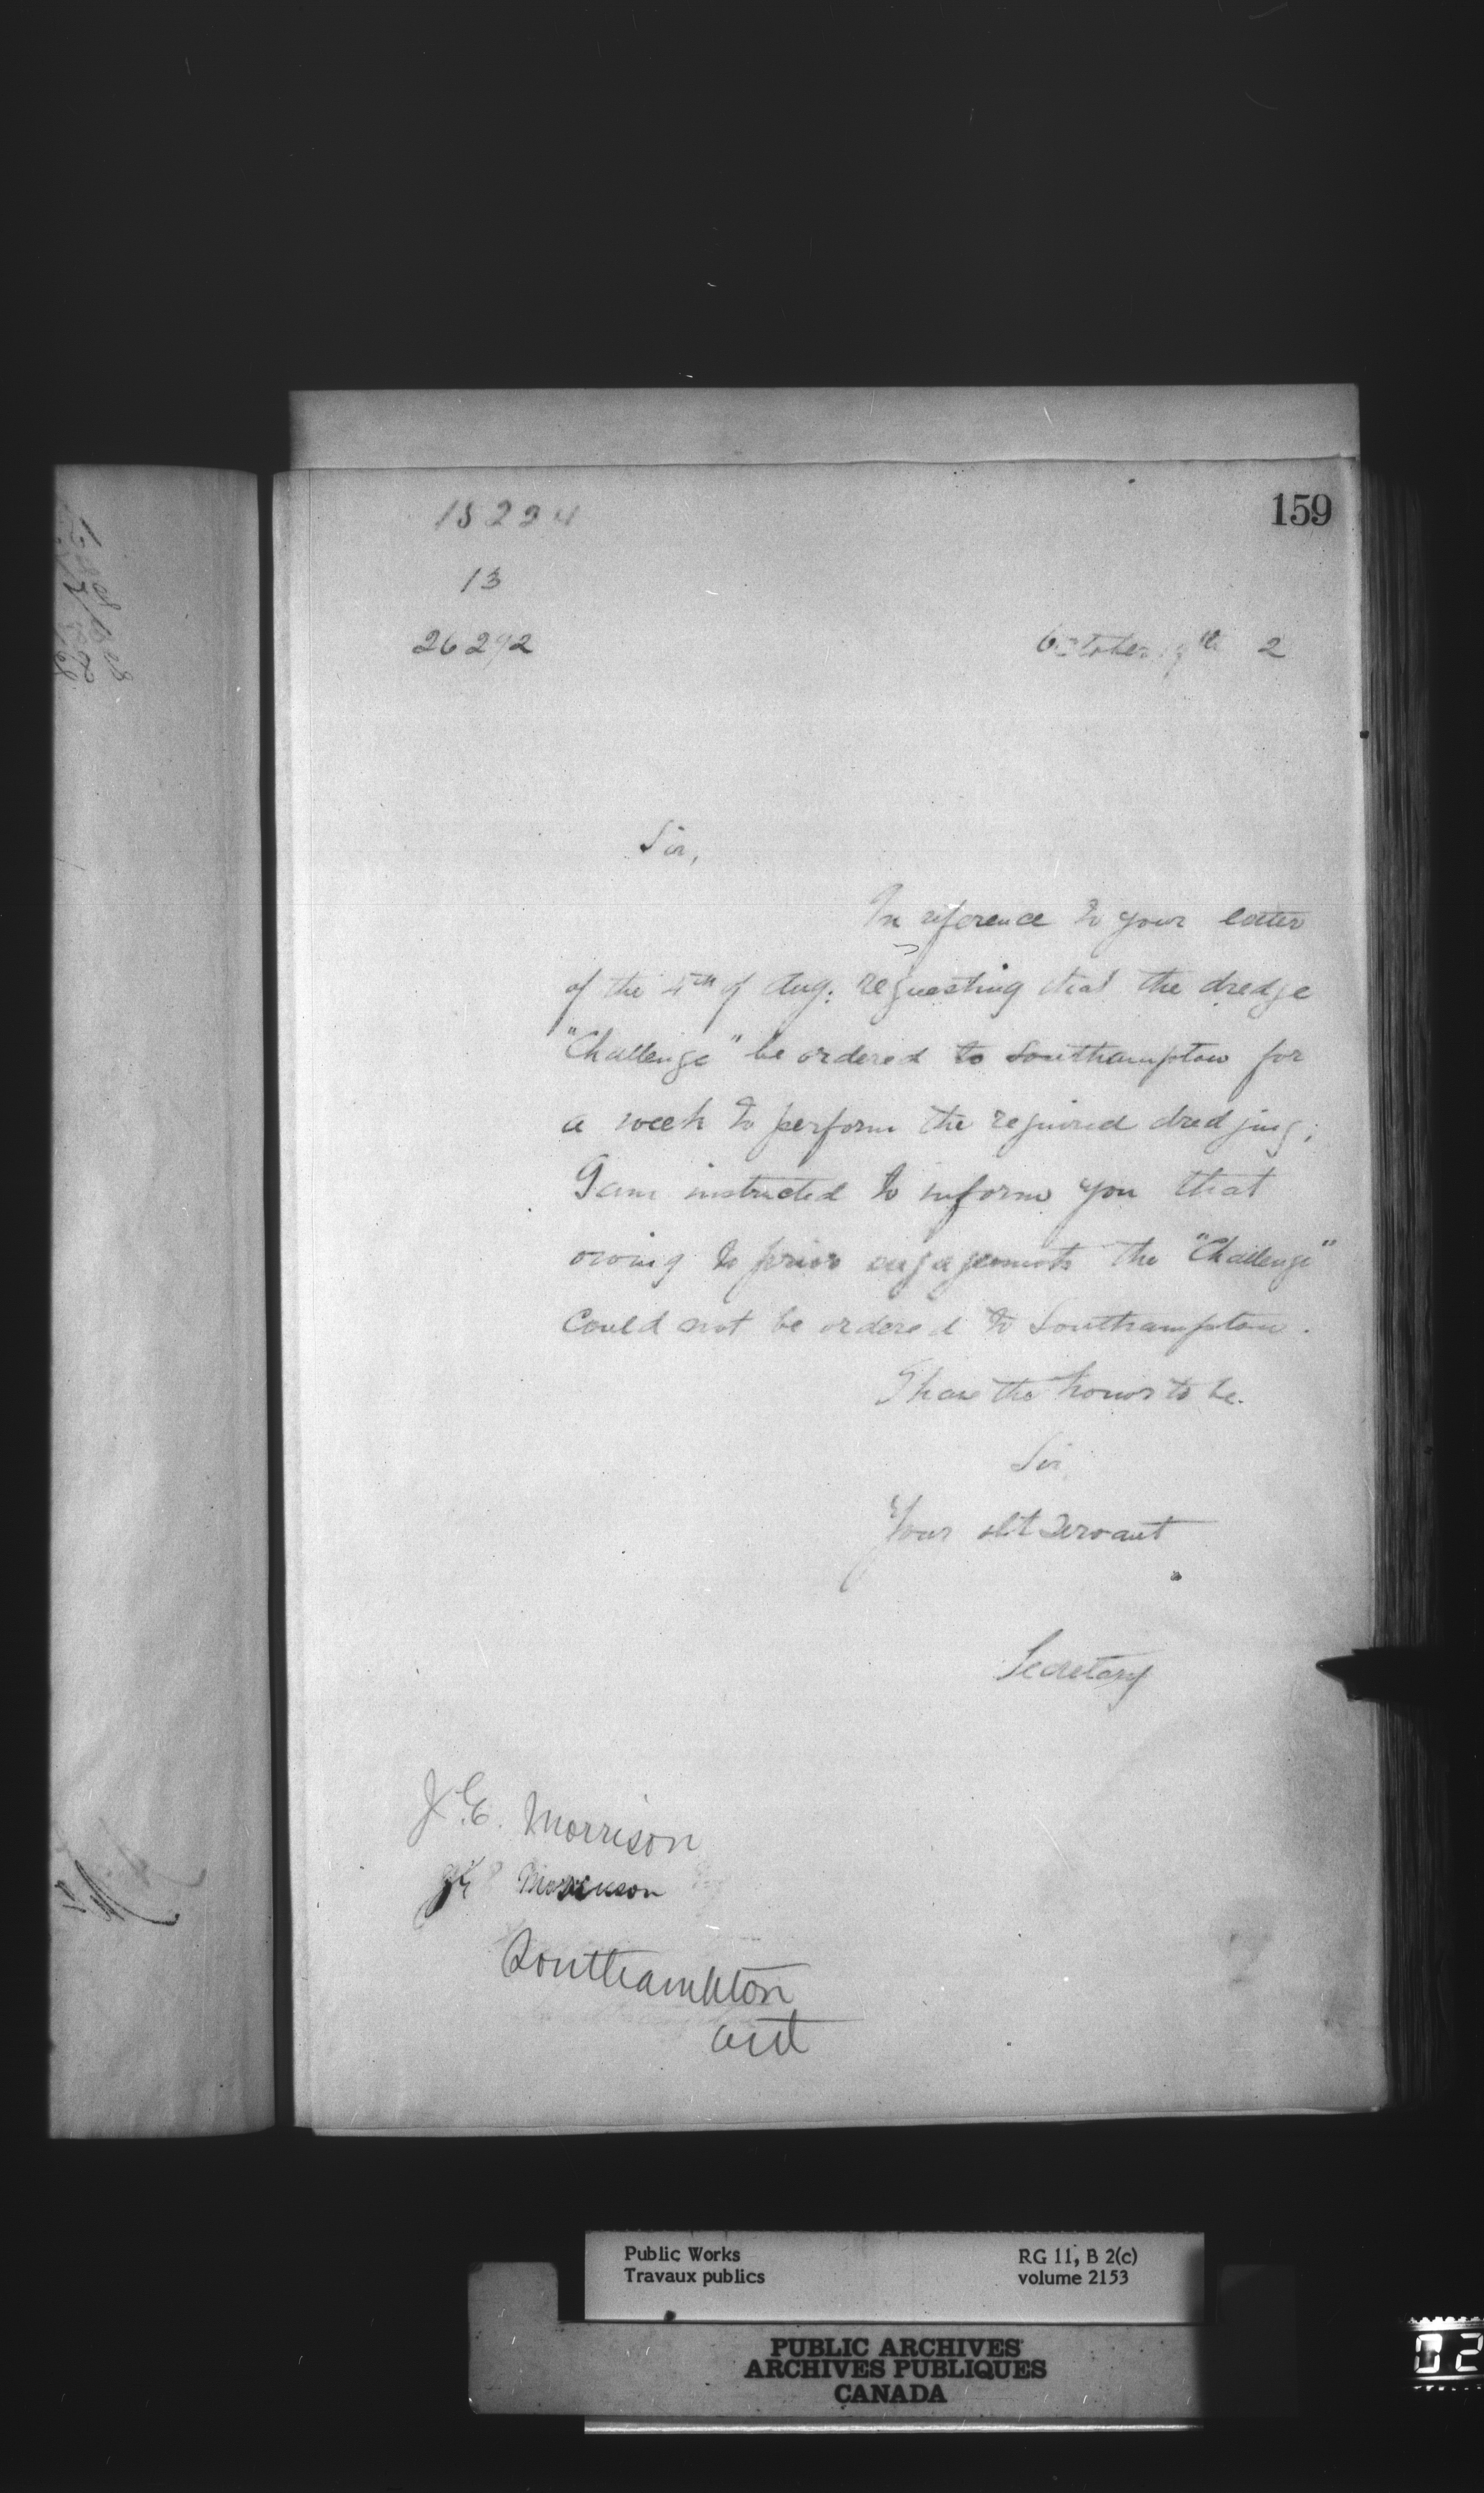 159
13
26292
October 19th 2
Sir,
In reference to your letter
of the 4th of Aug. requesting that the dredge
"Challenge" be ordered to Southampton for
a week to perform the required dredging;
I am instructed to inform you that
owing to prior engagements the "Challenge"
could not be ordered to Southampton.
I have the honor to be.
Sir
Your obt Servant
Secretary
Morrison
Southampton
Ont
Public Works
Travaux publics
RG 11, B 2(c)
volume 2153
PUBLIC ARCHIVES
ARCHIVES PUBLIQUES
CANADA
02